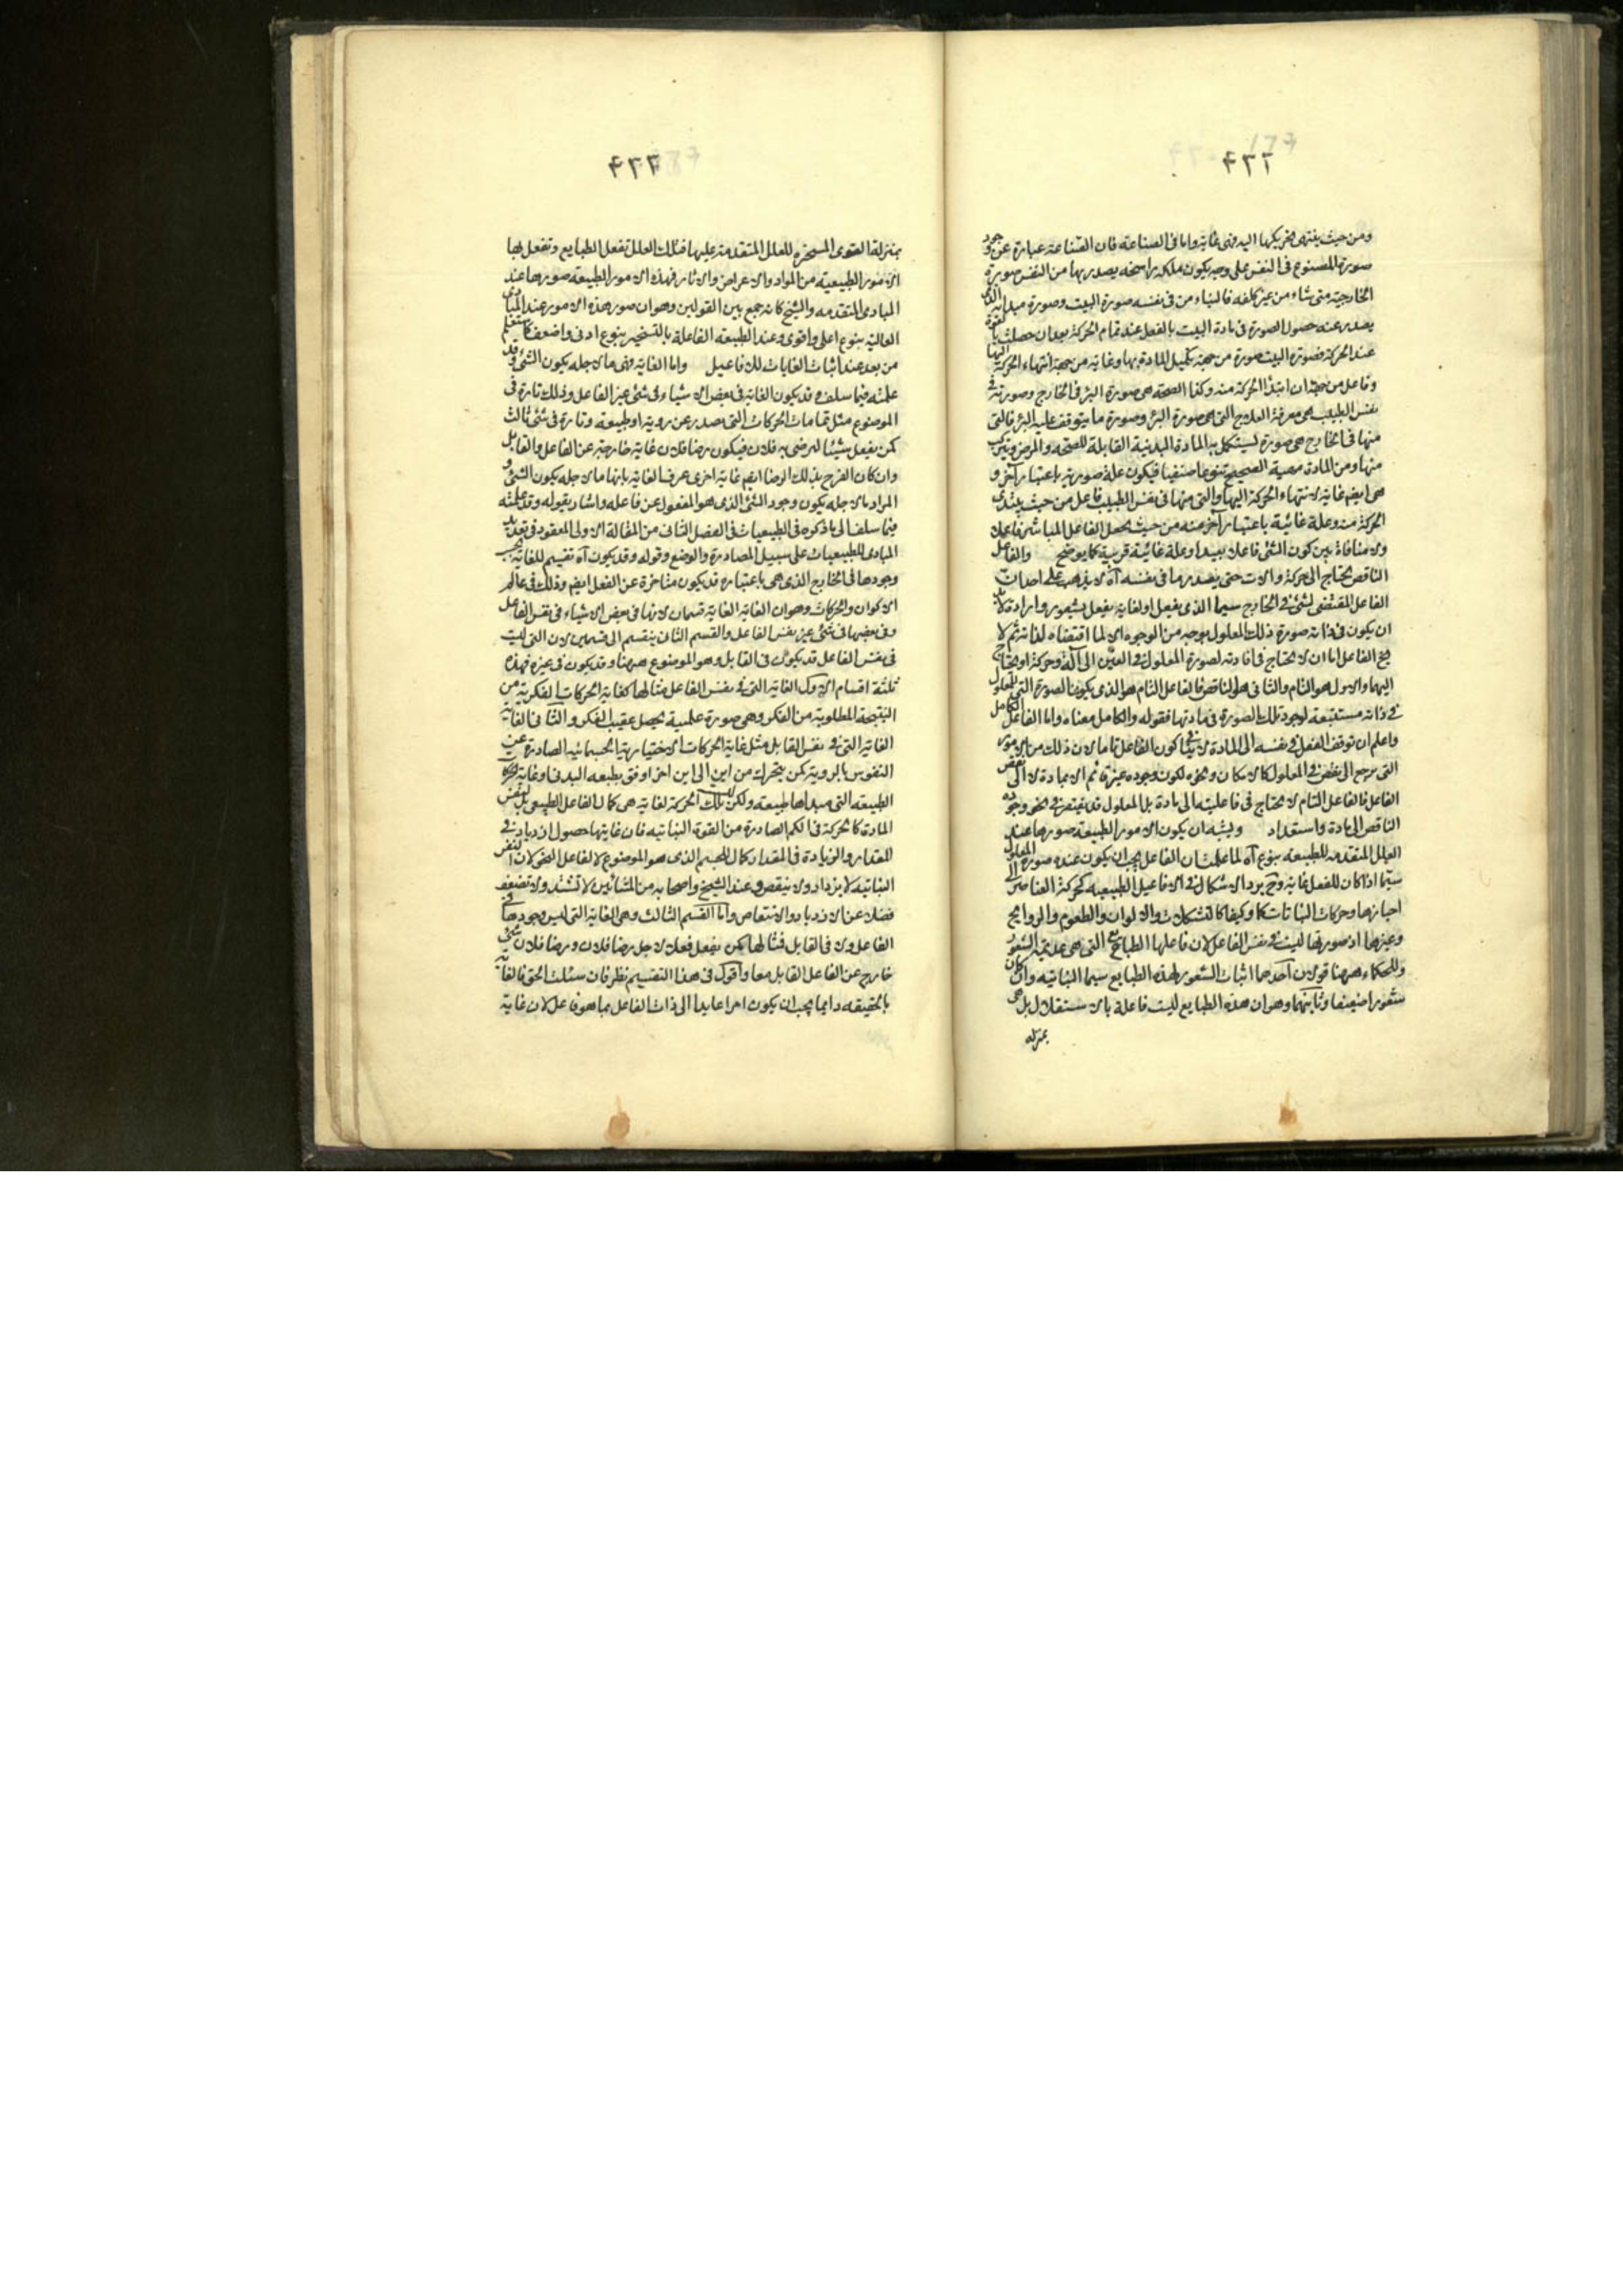 ٤٦٦
ومن حيث ينتهى تحريكها اليه فهى غاية واما فى الصناعة فان الصناعة عبارة عن وجود
صورة المصنوع فى النفس على وجه يكون ملكة راسخة يصدر بها من النفس صورة
الخارجية متى شاء من غير كلفة فالبناء من فى نفسه صورة البيت وصورة مبدا به الذى
يصدر عنه حصول الصورة فى مادة البيت بالفعل عند تمام الحركة بعد ان حصلت بالقوة
عند الحركة فصورة البيت صورة من جهة تكميل المادة بها وغاية من جهة انتهاء الحركة اليها
وفاعل من جهة ان ابتدا الحركة منه وكذا الصحة هى صورة البرء فى الخارج وصورته فى
نفس الطبيب هى معرفة العلاج التى هى صورة البرء وصورة ما يتوقف عليه البرء فالتى
منها فى الخارج هى صورة يستكمل به المادة البدنية القابلة للصحة والمرض ويتركب
منها ومن المادة مهية الصحيح تنوعا صنفيا فيكون علة صورية باعتبار آخر و
هى ايضم غاية لانتهاء الحركة اليها والتى منها فى نفس الطبيب فاعل من حيث يبتدى
الحركة منه وعلة غائية باعتبار آخر منه من حيث يحصل الفاعل المباشر فاعلا
ولا منافاة بين كون الشئ فاعلا بعيدا وعلة غائية قريبة كما يوضح والفاعل
الناقص يحتاج الى حركة والات حتى يصدر ما فى نفسه آه لا يذهب على احد ان
الفاعل المقتضى لشئ فى الخارج سيما الذى يفعل لغاية يفعل بشعور وارادة لابد
ان يكون فى ذاته صورة ذلك المعلول بوجه من الوجوه لما اقتضاه لذاته ثم لا
يخ الفاعل اما ان لا يحتاج فى افادته لصورة المعلول فى العين الى آلة وحركة او يحتاج
اليهما والاول هو التام والثانى هو الناقص فالفاعل التام هو الذى يكون الصورة التى للمعلول
فى ذاته مستتبعة لوجود تلك الصورة فى مادتها فقوله والكامل معناه واما الفاعل الكامل
واعلم ان توقف الفعل فى نفسه الى المادة لا ينافى كون الفاعل تاما لان ذلك من الامور
التى يرجع الى نقص فى المعلول كالامكان ونحوه لكون وجوده غير قائم الا بمادة لا الى نقص
الفاعل فالفاعل التام لا يحتاج فى فاعليته الى مادة بل المعلول قد يفتقر فى نحو وجوده
الناقص الى مادة واستعداد ويشبه ان يكون الامور الطبيعة صورها عند
العلل المتقدمه للطبيعه بنوع آه لما علمت ان الفاعل يجب ان يكون عنده صورة المعلول
سيما اذا كان للفعل غاية وح يرد الاشكال فى الافاعيل الطبيعيه كحركة العناصر الى
احيازها وحركات النباتات كما وكيفا كالتشكلات والالوان والطعوم والروايح
وغيرها اذ صورتها ليست فى نفس الفاعل لان فاعلها الطبائع التى هى عديمة الشعور
وللحكماء ههنا قولان احدهما اثبات الشعور لهذه الطبايع سيما النباتيه وان كان
شعورا ضعيفا وثانيهما وهو ان هذه الطبايع ليست فاعلة بالاستقلال بل هى
بمنزلة
٤٦٧
بمنزلة القوى المسخره للعلل المتقدمة عليها فتلك العلل تفعل الطبايع وتفعل بها
الامور الطبيعية من المواد والاعراض والاثار فهذه الامور الطبيعه صورها عند
المبادى المتقدمه والشيخ كانه جمع بين القولين وهو ان صور هذه الامور عند المبادى
العالية بنوع اعلى واقوى وعند الطبيعه الفاعلة بالتسخير بنوع ادنى واضعف كما ستعلم
من بعد عند اثبات الغايات للافاعيل واما الغاية فهى ما لاجله يكون الشئ وقد
علمته فيما سلف وقد يكون الغاية فى بعض الاشياء فى شئ غير الفاعل وذلك تارة فى
الموضوع مثل تمامات الحركات التى تصدر عن روية او طبيعه وتارة فى شئ ثالث
كمن يفعل شيئا ليرضى به فلان فيكون رضا فلان غاية خارجة عن الفاعل والقابل
وان كان الفرح بذلك الرضا ايضم غاية اخرى عرف الغاية بانها ما لاجله يكون الشئ و
المراد ما لاجله يكون وجود الشئ الذى هو المفعول عن فاعله واشار بقوله وقد علمته
فيما سلف الى ما ذكره فى الطبيعيات فى الفصل الثانى من المقالة الاولى المعقود فى تعديد
المبادى للطبيعيات على سبيل المصادرة والوضع وقوله وقد يكون آه تقسيم للغاية بحسب
وجودها فى الخارج الذى هى باعتباره قد يكون متاخرة عن الفعل ايضم وذلك فى عالم
الاكوان والحركات وهو ان الغاية الغاية قسمان لانها فى بعض الاشياء فى نفس الفاعل
وفى بعضها فى شئ غير نفس الفاعل والقسم الثانى ينقسم الى قسمين لان التى ليست
فى نفس الفاعل قد يكون فى القابل وهو الموضوع ههنا وقد يكون فى غيره فهذه
ثلثة اقسام الاول الغاية التى فى نفس الفاعل مثالها كغاية الحركات الفكرية من
النتيجة المطلوبة من الفكر وهى صورة علمية يحصل عقيب الفكر والثانى الغاية
الغاية التى فى نفس القابل مثل غاية الحركات الاختيارية الجسمانيه الصادرة عن
النفوس بالروية كمن يتحرك من اين الى اين اخر اوفق بطبيعه البدن او غاية الحركات
الطبيعه التى مبداها طبيعه ولكن ليس تلك الحركة لغاية هى كمال الفاعل الطبيعى بل لنقص
المادة كالحركة فى الكم الصادرة من القوة النباتيه فان غايتها حصول ازدياد فى
المقدار والزيادة فى المقدار كمال للجسم الذى هو الموضوع لا لفاعل النمو لان النفس
النباتيه لا يزداد ولا ينقص وعند الشيخ واصحابه من المشائين لا تشتد ولا تضعف
فضلا عن الازدياد والانتقاص واما القسم الثالث وهى الغاية التى ليس وجودها فى
الفاعل ولا فى القابل فمثالها كمن يفعل فعلا لاجل رضا فلان ورضا فلان شئ
خارج عن الفاعل القابل معا واقول فى هذا التقسيم نظر فان سئلت الحق فالغاية
بالحقيقه دايما يجب ان يكون امرا عايدا الى ذات الفاعل بما هو فاعل لان غاية